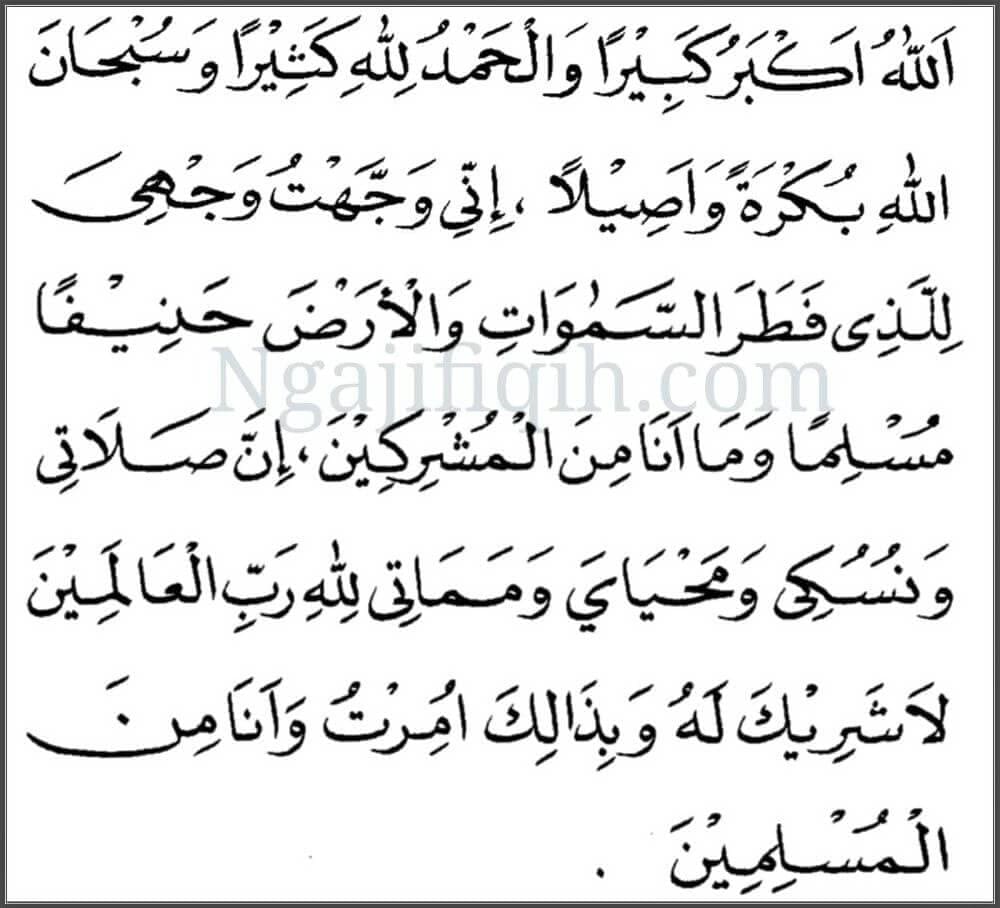 اَللّٰهُ اَكْبَرُ كَبِيْرًا وَالْحَمْدُ لِلّٰهِ كَثِيْرًا وَسُبْحَانَ
اللّٰهِ بُكْرَةً وَاَصِيْلًا ، اِنِّي وَجَّهْتُ وَجْهِيَ
لِلَّذِى فَطَرَ السَّمٰوَاتِ وَالْأَرْضَ حَنِيْفًا
Ngajifiqih.com
مُسْلِمًا وَمَا اَنَا مِنَ الْمُشْرِكِيْنَ ، اِنَّ صَلَاتِي
وَنُسُكِى وَمَحْيَايَ وَمَمَاتِى لِلّٰهِ رَبِّ الْعَالَمِيْنَ
لَا شَرِيْكَ لَهُ وَبِذَالِكَ اُمِرْتُ وَاَنَا مِنَ
الْمُسْلِمِيْنَ .